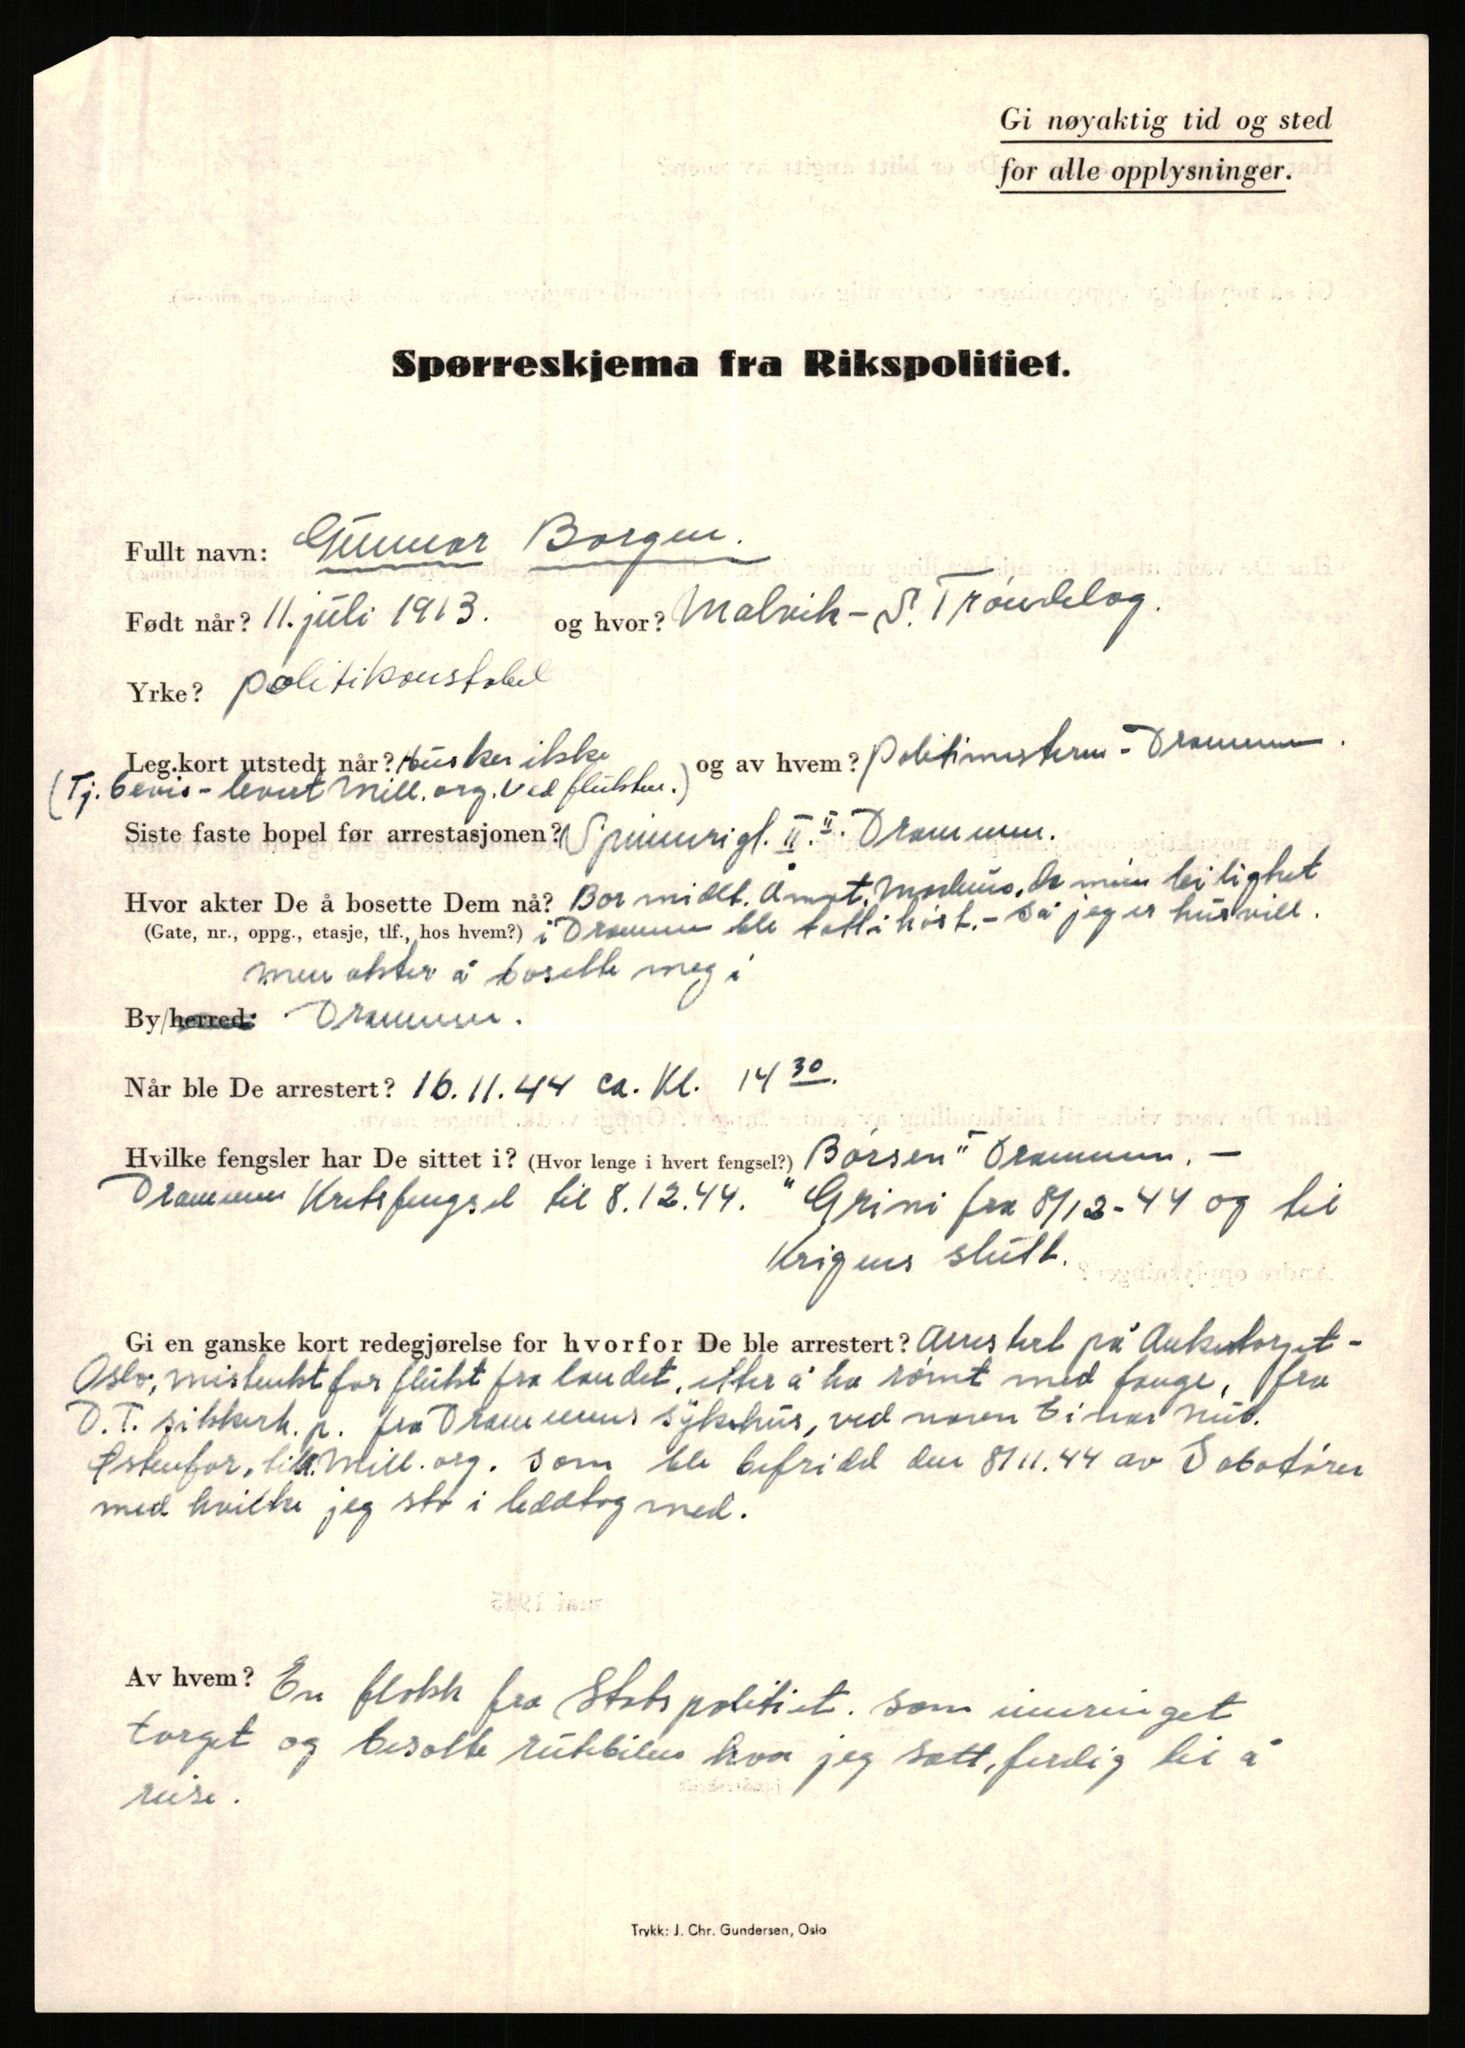 Gi nøyaktig tid og sted
for alle opplysninger.
Spørreskjema fra Rikspolitiet.
Fullt navn: Gunnar Borgen.
Født når? 11. juli 1913. og hvor? Malvik - S. Trøndelag.
Yrke? politikonstabel
Leg.kort utstedt når? Husker ikke og av hvem? Politimesteren - Drammen.
(Tj. bevis - levert Mill. org. ved flukten.)
Siste faste bopel før arrestasjonen? Spinnerigt. II. II. Drammen.
Hvor akter De å bosette Dem nå? Bor midlt. Åmot, Modum, da min leilighet
(Gate, nr., oppg., etasje, tlf., hos hvem?) i Drammen ble tatt i høst. - så jeg er husvill.
men akter å bosette meg i
By/herred: Drammen.
Når ble De arrestert? 16.11.44 ca. Kl. 14 30.
Hvilke fengsler har De sittet i? (Hvor lenge i hvert fengsel?) "Børsen" Drammen. -
Drammen Kretsfengsel til 8.12.44. Grini fra 8/12-44 og til
Krigens slutt.
Gi en ganske kort redegjørelse for hvorfor De ble arrestert? Arrestert på Ankertorget -
Oslo, mistenkt for flukt fra landet, etter å ha rømt med fange, fra
D. T. sikkerh. p. fra Drammens sykehus, ved navn Einar
Østenfor, Mill. org. som ble befridd den 8/11.44 av Sabotører
med hvilke jeg sto i leddtog med.
Av hvem? En flokk fra Statspolitiet. som innringet
torget og besatte rutebilen hvor jeg satt, ferdig til å
reise.
Trykk: J. Chr. Gundersen, Oslo